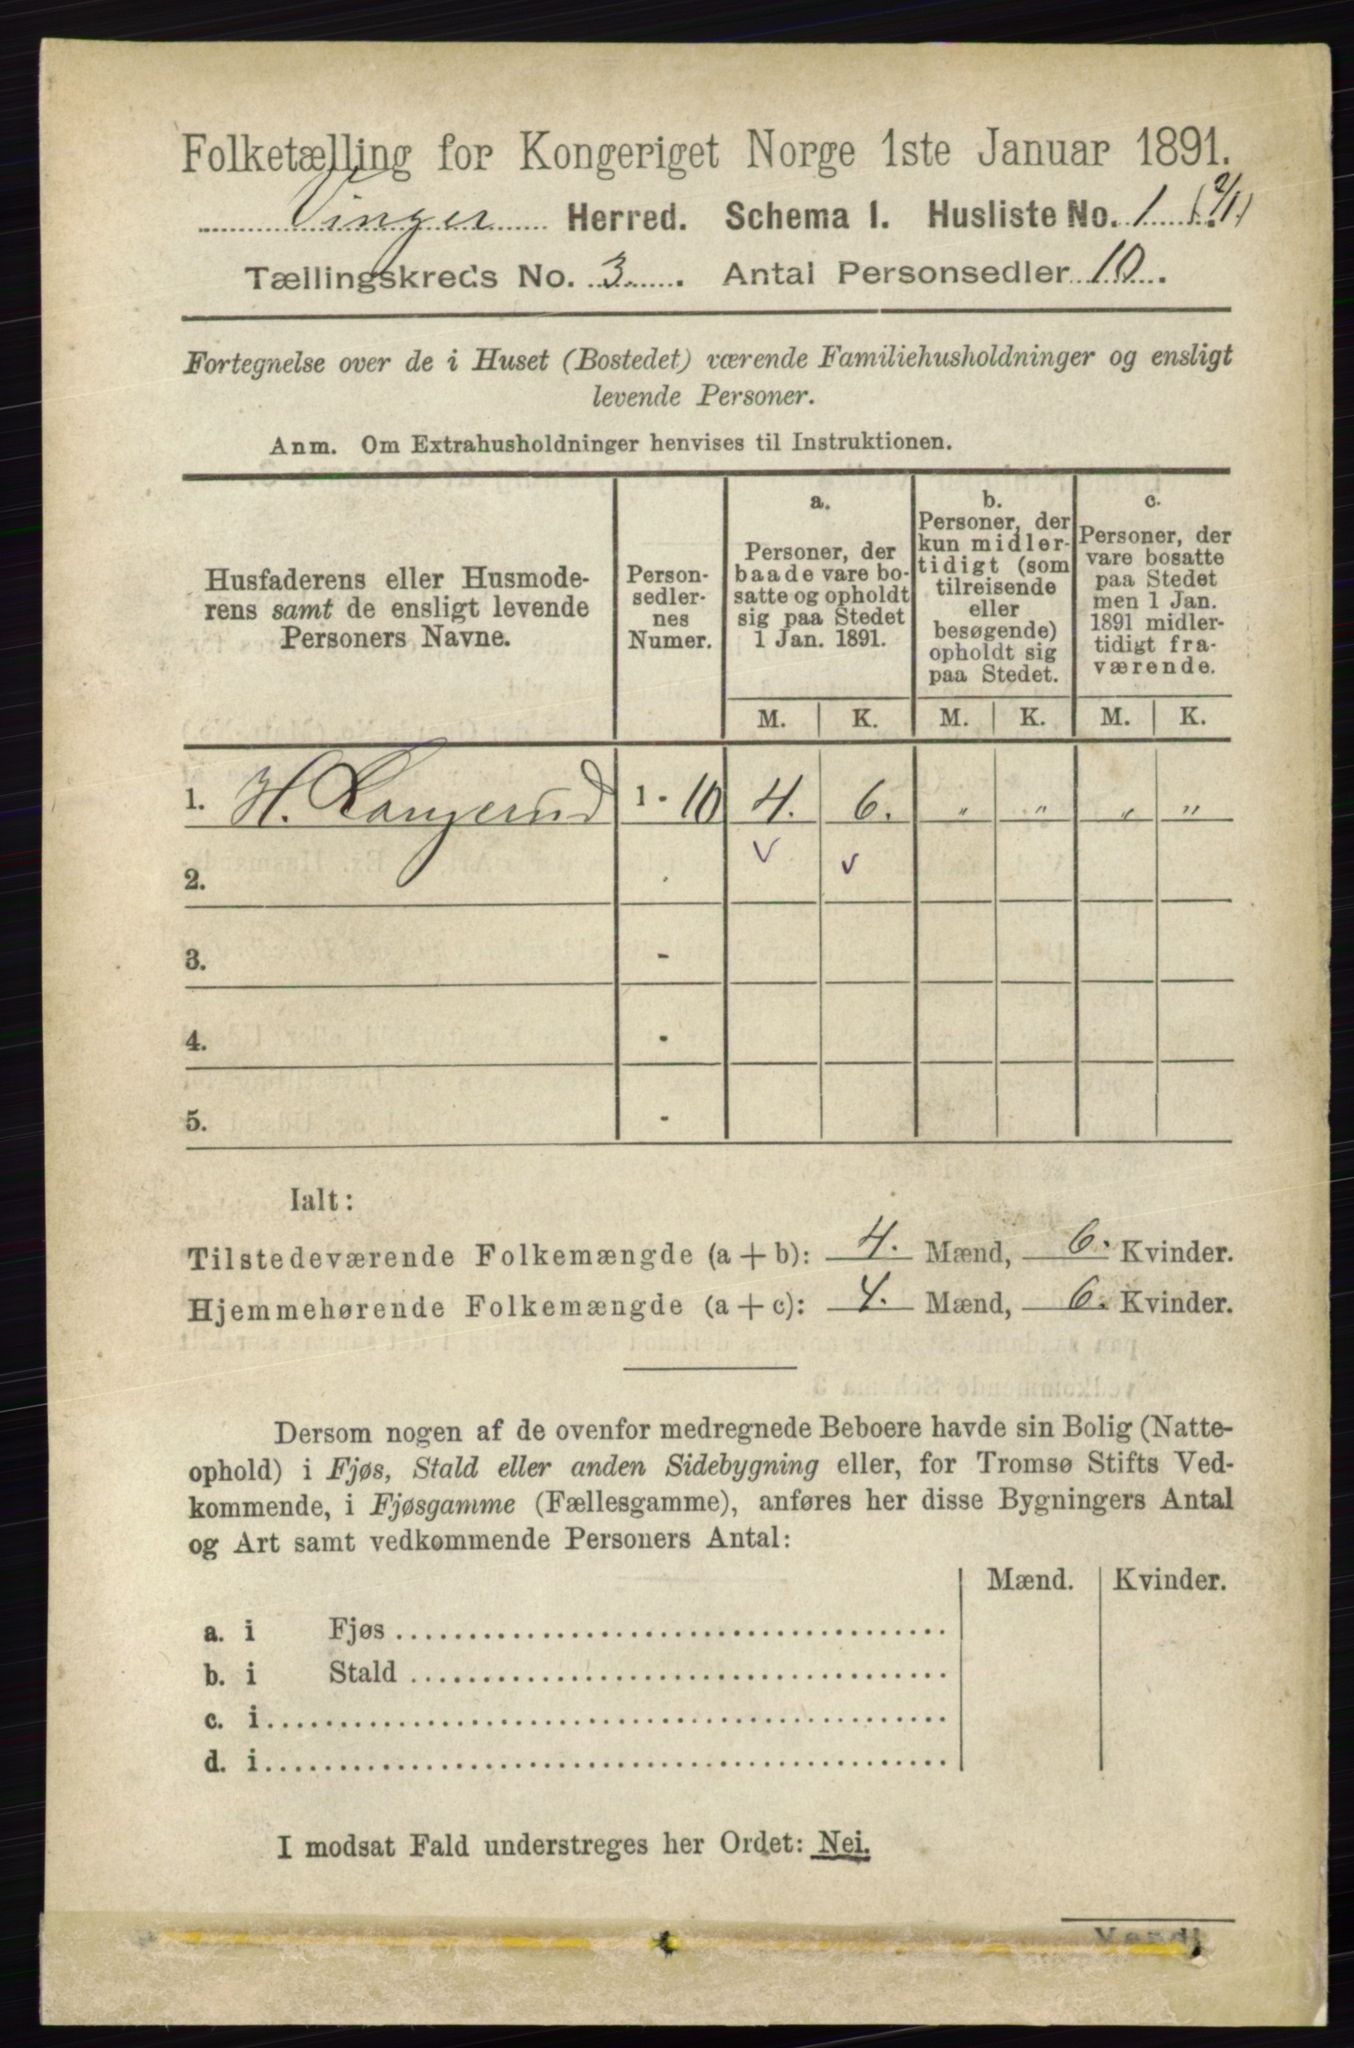 Folketælling for Kongeriget Norge 1ste Januar 1891.
Vinger Herred. Schema 1. Husliste No. 1
Tællingskreds No. 3. Antal Personsedler 10.
Fortegnelse over de i Huset (Bostedet) værende Familiehusholdninger og ensligt
levende Personer.
Anm. Om Extrahusholdninger henvises til Instruktionen.
Husfaderens eller Husmode-
rens samt de ensligt levende
Personers Navne.
Person-
sedler-
nes
Numer.
a.
Personer, der
baade vare bo-
satte og opholdt
sig paa Stedet
1 Jan. 1891.
b.
Personer, der
kun midler-
tidigt (som
tilreisende
eller
besøgende)
opholdt sig
paa Stedet.
c.
Personer, der
vare bosatte
paa Stedet
men 1 Jan.
1891 midler-
tidigt fra-
værende.
M. K. M. K. M. K.
1. H. Langerud 1 - 10 4. 6. " " " "
2.
3. -
4. -
5. -
Ialt:
Tilstedeværende Folkemængde (a + b): 4. Mænd, 6. Kvinder.
Hjemmehørende Folkemængde (a + c): 4. Mænd, 6. Kvinder.
Dersom nogen af de ovenfor medregnede Beboere havde sin Bolig (Natte-
ophold) i Fjøs, Stald eller anden Sidebygning eller, for Tromsø Stifts Ved-
kommende, i Fjøsgamme (Fællesgamme), anføres her disse Bygningers Antal
og Art samt vedkommende Personers Antal:
Mænd. Kvinder.
a. i Fjøs
b. i Stald
c. i
d. i
I modsat Fald understreges her Ordet: Nei.
Vend!